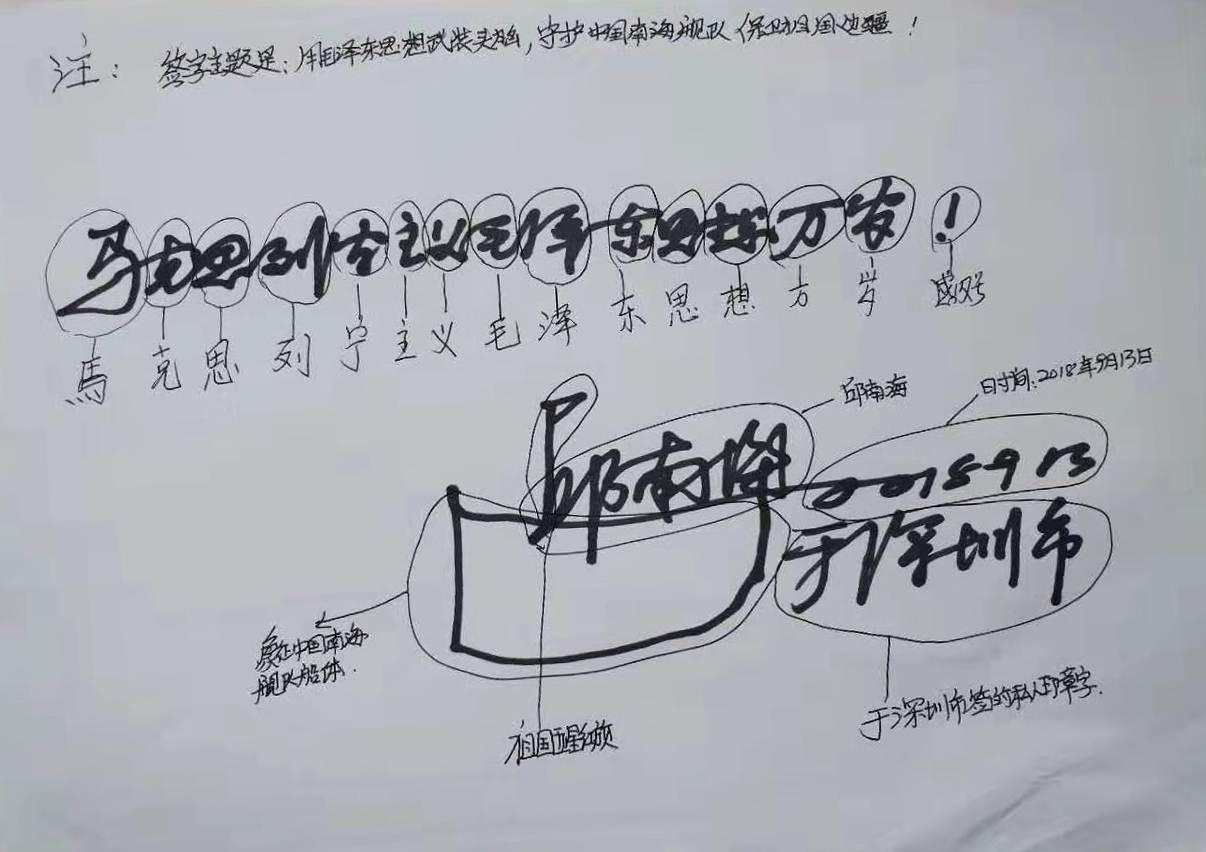 注：签字主题是：用毛泽东思想武装头脑，守护中国南海舰队保卫祖国边疆！
马克思列宁主义毛泽东思想万岁！
馬克思列宁主义毛泽东思想万岁 感叹号
邱南海
日时间：2018年9月13日
邱南海
2018 9 13
于深圳市
象征中国南海
舰队船体.
祖国五星红旗
于深圳市签的私人印章字.